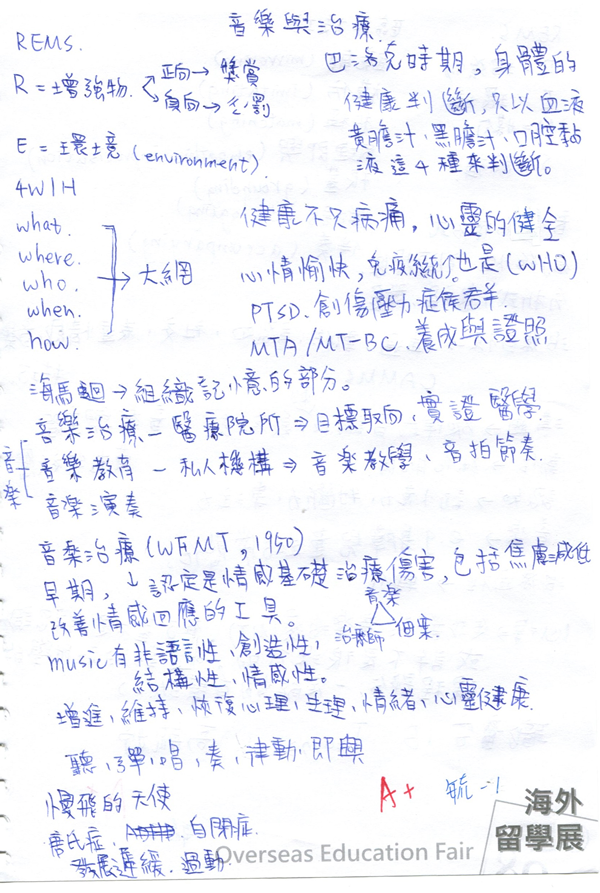 音樂與治療.
REMS.
R = 增強物. 正向→ 獎賞
負向→ 處罰
E = 環境 (environment)
4W1H
what.
where.
who.
when.
how.
→ 大綱
巴洛克時期，身體的
健康判斷，只以血液
黃膽汁、黑膽汁、口腔黏
液這4種來判斷。
健康不只病痛，心靈的健全
心情愉快，免疫系統也是(WHO)
PTSD. 創傷壓力症候群.
MTA/MT-BC. 養成與證照
海馬迴→組織記憶的部分。
音樂
音樂治療－醫療院所⇒目標取向，實證醫學.
音樂教育－私人機構⇒音樂教學、音拍節奏.
音樂演奏
音樂治療(WFMT, 1950)
早期，↓認定是情感基礎治療傷害，包括焦慮減低
改善情感回應的工具。
音樂
治療師 個案.
music有非語言性，創造性，
結構性，情感性。
增進，維持，恢復心理，生理，情緒，心靈健康.
聽，彈，唱，奏，律動，即興
慢飛的天使
唐氏症、自閉症.
發展遲緩. 過動.
A+
海外
留學展
Overseas Education Fair